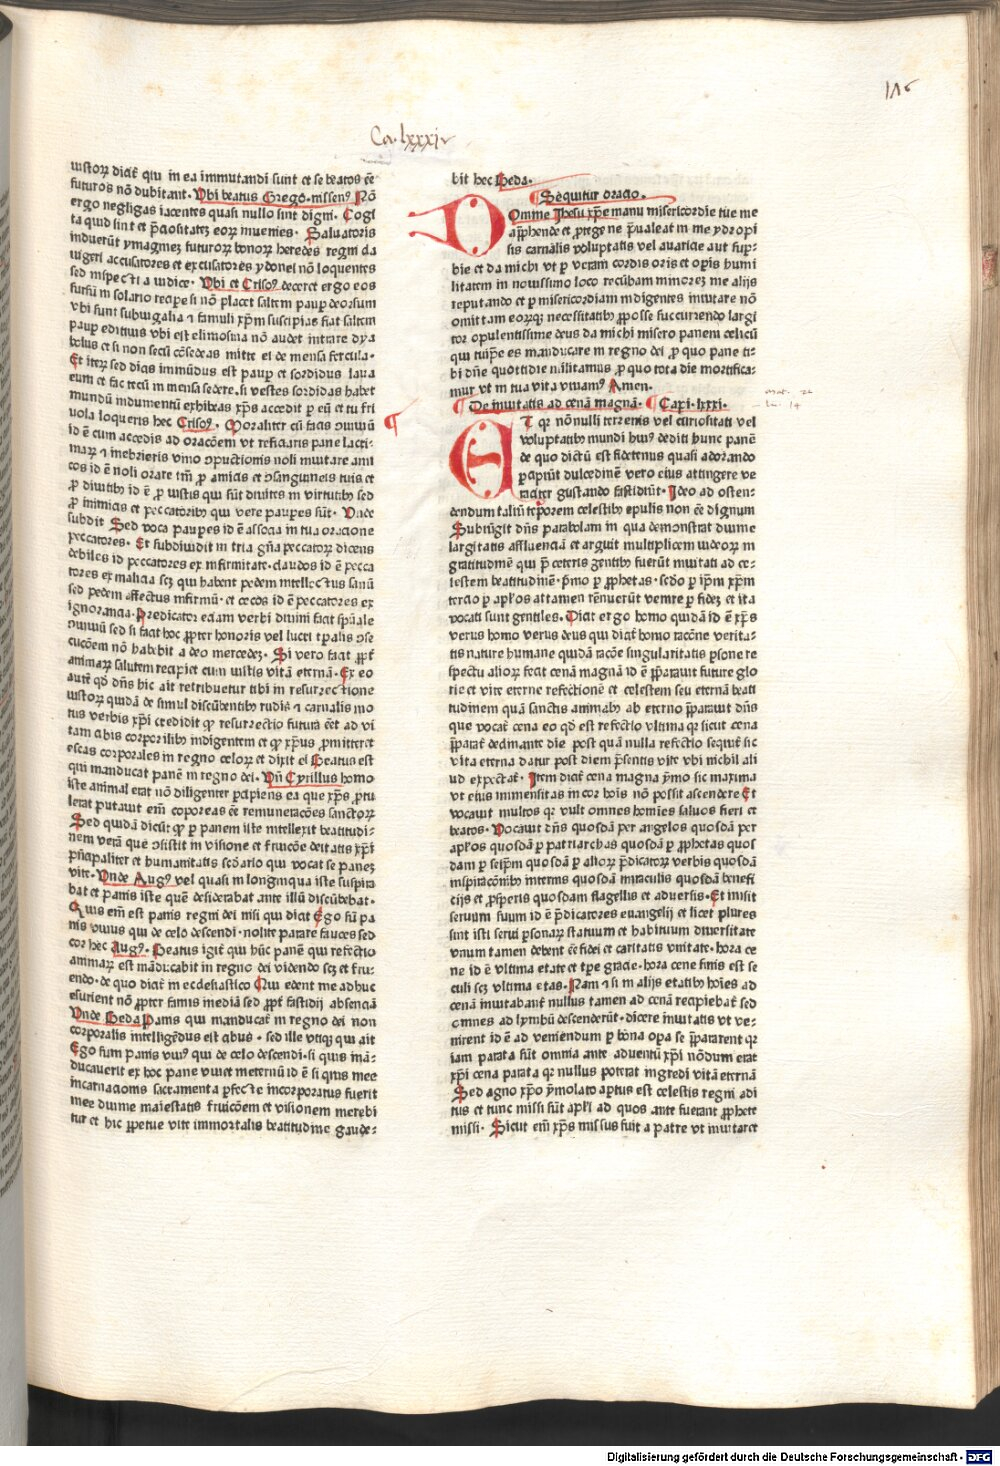 116
Ca. lxxxiv
iustorꝝ dicat̄ qui in ea immutandi sunt et se beatos eē
futuros nō dubitant. Ubi beatus Grego. nissenꝰ Nō
ergo negligas iacentes quasi nullo sint digni. Cogi
ta quid sint et p̄ciositatez eorꝝ inuenies. Saluatoris
induerūt ymaginez futurorꝝ bonorꝝ heredes regni cla
uigeri accusatores et excusatores ydonei nō loquentes
sed inspecti a iudice. Ubi et Crisoꝰ deceret ergo eos
sursū in solario recipe si nō placet saltem paupē deorsum
vbi sunt subiugalia ⁊ famuli xp̄m suscipias fiat saltem
paup edituus vbi est elimosina nō audet intrare dya
bolus et si non secū cōsedeas mitte ei de mensa fercula.
Et iterꝝ sed dicis immūdus est paup et sordidus laua
eum et fac tecū in mensa sedere. si vestes sordidas habet
mundū indumentū exhibeas xp̄s accedit p eū et tu fri
uola loqueris hec Crisoꝰ. Moraliter cū facis ↄuiuiū
id ē cum accedis ad oracōem vt reficiaris pane lacri-
marꝝ ⁊ inebrieris vino ↄpuctionis noli inuitare ami
cos id ē noli orare tm̄ ꝓ amicis et ↄsanguineis tuis et
ꝓ diuitibꝫ id ē ꝓ iustis qui sūt diuites in virtutibꝫ sed
ꝓ inimicis et peccatoribꝫ qui vere paupes sūt. Unde
subdit Sed voca paupes id ē associa in tua oracione
peccatores. Et subdiuidit in tria gn̄a peccatorꝝ dicens
debiles id peccatores ex infirmitate. claudos id ē pecca
tores ex malicia scꝫ qui habent pedem intellectus sanū
sed pedem affectus infirmū. et cecos id ē peccatores ex
ignorancia. Predicator eciam verbi diuini facit sp̄uale
ↄuiuiū sed si facit hoc ꝓpter honoris vel lucri tp̄alis ↄse
cucōem nō habebit a deo mercedeꝫ. Si vero facit ꝓpt̄
animarꝝ salutem recipiet cum iustis vitā eternā. Ex eo
autē qd̄ dn̄s hic ait retribuetur tibi in resurrectione
iustorꝝ quidā de simul discūbentibꝫ rudis ⁊ carnalis mo
tus verbis xp̄i credidit ꝙ resurrectio futura eēt ad vi
tam cibis corporalibꝫ indigentem et ꝙ xp̄us ꝓmitteret
escas corporales in regno celorꝝ et dixit ei Beatus est
qui manducat panē in regno dei. Vn̄ Cyrillus homo
iste animal erat nō diligenter p̄cipiens ea que xp̄s ꝓtu
lerat putauit em̄ coporeas eē remuneracōes sanctorꝝ
Sed quidā dicūt ꝙ p panem iste intellexit beatitudi-
nem verā que ↄsistit in visione et fruicōe deitatis xp̄i
p̄ncipaliter et humanitatis scd̄ario qui vocat se panez
vite. Unde Augꝰ vel quasi in longinqua iste suspira
bat et panis iste quē desiderabat ante illū discūbebat.
Quis em̄ est panis regni dei nisi qui dicit Ego sū pa
nis viuus qui de celo descendi. nolite parare fauces sed
cor hec Augꝰ. Beatus igit̄ qui hūc panē qui refectio
animarꝝ est māducabit in regno dei videndo scꝫ et fru-
endo. de quo dicit̄ in ecclesiastico Qui edent me adhuc
esurient nō ꝓpter famis inediā sed ꝓpt̄ fastidij absenciā
Unde Beda Panis qui manducat̄ in regno dei non
corporalis intelligēdus est cibus. sed ille vtiqꝫ qui ait
Ego sum panis viuꝰ qui de celo descendi. si quis mā-
ducauerit ex hoc pane viuet ineternū id ē si quis mee
incarnacionis sacramenta pfecte incorporatus fuerit
mee diuine maiestatis fruicōem et visionem merebi
tur et hic ꝑpetue vite immortalis beatitudine gaude-
bit hec Beda.
Sequitur oracio.
Domine Jhesu xp̄e manu misericordie tue me
apphende et ꝓtege ne p̄ualeat in me ydropi
sis carnalis voluptatis vel auaricie aut sup-
bie et da michi vt p veram cordis oris et opis humi
litatem in nouissimo loco recūbam minorez me alijs
reputando et p misericordiam indigentes inuitare nō
omittam eorꝝqꝫ necessitatibꝫ ꝓposse succurrendo largi
tor opulentissime deus da michi misero panem celicū
qui tuip̄e es manducare in regno dei ꝓ quo pane ti-
bi dn̄e quottidie militamus ꝓ quo tota die mortifica-
mur vt in tua vita viuamꝰ Amen.
De inuitatis ad cenā magnā. Capi. lxxxi.
mat. 22
lu. 14
Et qꝛ nōnulli terrenis vel curiositati vel
voluptatibꝫ mundi huiꝰ dediti hunc panē
de quo dictū est fidetenus quasi adorando
p̄captūt dulcedinē vero eius attingere ve
raciter gustando fastidiūt. Ideo ad osten-
dendum taliū teporem celestibꝫ epulis non eē dignum
Subiūgit dn̄s parabolam in qua demonstrat diuine
largitatis affluenciā et arguit multiplicem iudeorꝝ in
gratitudinē qui p̄ ceteris gentibꝫ fuerūt inuitati ad ce-
lestem beatitudinē. p̄mo p ꝓphetas. secūdo p ip̄m xp̄m
tercio p ap̄los attamen rēnuerūt venire p fidez et ita
vocati sunt gentiles. Dicit ergo homo quidā id ē xp̄s
verus homo verus deus qui dicit̄ homo racōne verita-
tis nature humane quidā racōe singularitatis psone re
spectu aliorꝝ fecit cenā magnā id ē p̄parauit future glo
rie et vite eterne refectionē et celestem seu eternā beati
tudinem quā sanctis animabꝫ ab eterno p̄parauit dn̄s
que vocat̄ cena eo qd̄ est refectio vltima qꝛ sicut cena
p̄parat̄ declinante die post quā nulla refectio sequit̄ sic
vita eterna datur post diem p̄sentis vite vbi nichil ali
ud expectat̄. Item dicit̄ cena magna p̄mo sic maxima
vt eius immensitas in cor hoīs nō possit ascendere Et
vocauit multos qꝛ vult omnes homīes saluos fieri et
beatos. Vocauit dn̄s quosdā per angelos quosdā per
ap̄los quosdā p patriarchas quosdā p ꝓphetas quos
dam p seip̄m quosdā p aliorꝝ p̄dicatorꝝ verbis quosdā
inspiracōnibꝫ internis quosdā miraculis quosdā benefi
cijs et ꝓsperis quosdam flagellis et aduersis. Et misit
seruum suum id ē p̄dicatores euangelij et licet plures
sint isti serui psonarꝝ statuum et habituum diuersitate
vnum tamen debent eē fidei et caritatis vnitate. hora ce
ne id ē vltima etate et tpe gracie. hora cene finis est se
culi scꝫ vltima etas. Nam ⁊ si in alijs etatibꝫ hoīes ad
cenā inuitabant̄ nullus tamen ad cenā recipiebat̄ sed
omnes ad lymbū descenderūt. dicere inuitatis vt ve-
nirent id ē ad veniendum p bona opa se p̄pararent qꝛ
iam parata sūt omnia ante aduentū xp̄i nōdum erat
xp̄i cena parata qꝛ nullus poterat ingredi vitā eternā
Sed agno xp̄o ymolato aptus est celestis regni adi
tus et tunc missi sūt ap̄li ad quos ante fuerant ꝓphete
missi. Sicut em̄ xp̄s missus fuit a patre vt inuitaret
Digitalisierung gefördert durch die Deutsche Forschungsgemeinschaft - DFG